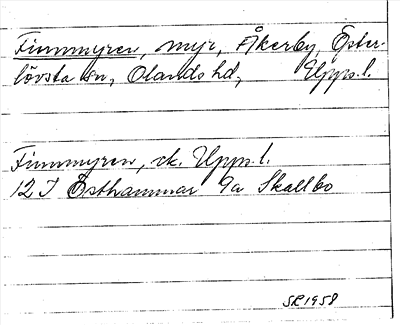 Finnmyren, myr, Åkerby, Öster-
lövsta sn, Olands hd, Upps. l.
Finnmyren, ek. Upps. l.
12 I Östhammar 9a Skallbo
SR 1958